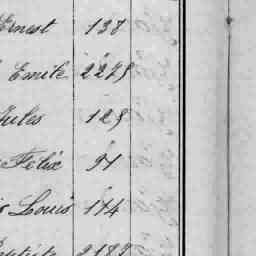 Ernest 138
Emile 2275
Jules 125
Félix 91
Louis 174
2187